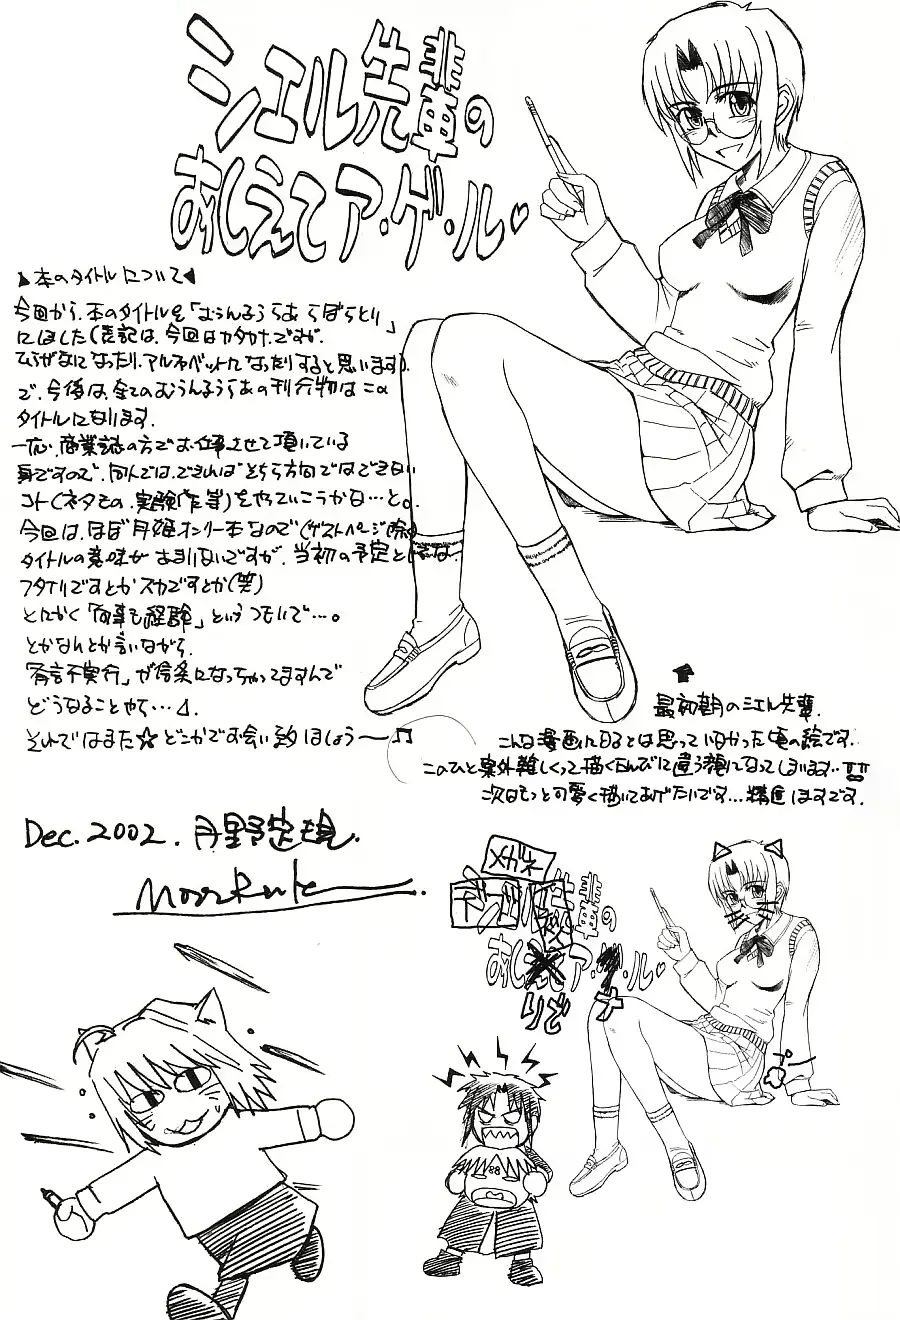 シエル先輩の
おしえてア・ゲ・ル♡
本のタイトルについて
今回から、本のタイトルを「むぅんるぅらあ らぼらとり」
にしました(表記は、今回はカタカナですが、
ひらがなになったり、アルファベットになったりすると思います)。
で、今後は、全てのむぅんるぅらあの刊行物はこの
タイトルになります。
一応、商業誌の方でお仕事させて頂いている
身ですので、同人では、できればそちら方向ではできない
コト(ネタとか、実験作等)をやっていこうかな…と。
今回は、ほぼ月姫オンリー本なので(ゲストページ除く)
タイトルの意味があまりないですが、当初の予定としては、
フタナリですとかスカですとか(笑)
とにかく「何事も経験」というつもりで…。
とかなんとか言いながら、
「有言不実行」が信条になっちゃってますんで
どうなることやら…
それではまた☆どこかでお会い致しましょう〜♫
最初期のシエル先輩。
こんな漫画になるとは思っていなかった頃の絵です…
このひと案外難しくって描くたんびに違う顔になってしまいます…!!
次はもっと可愛く描いてあげたいです…精進しますです。
Dec. 2002. 月野定規.
メガネ
デ
の
あし
ア・・ル♡
りど
ナ
88